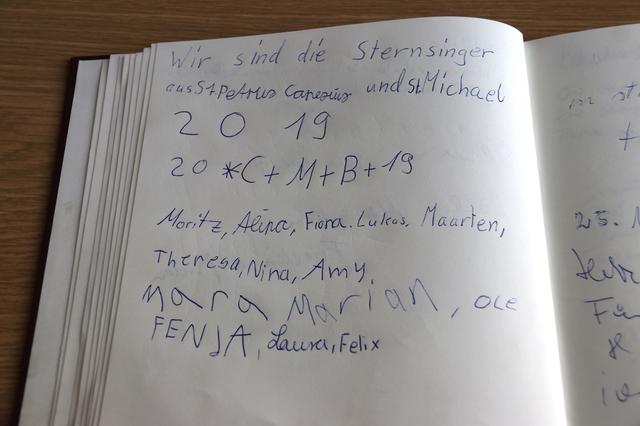 Wir sind die Sternsinger
aus St Petrus Canesius und st. Michael
20 19
20 *C+M+B+19
Moritz, Alina, Fiora. Lukas, Maarten,
Theresa, Nina, Amy,
Mara Marian, Ole
FENJA, Laura, Felix
25.